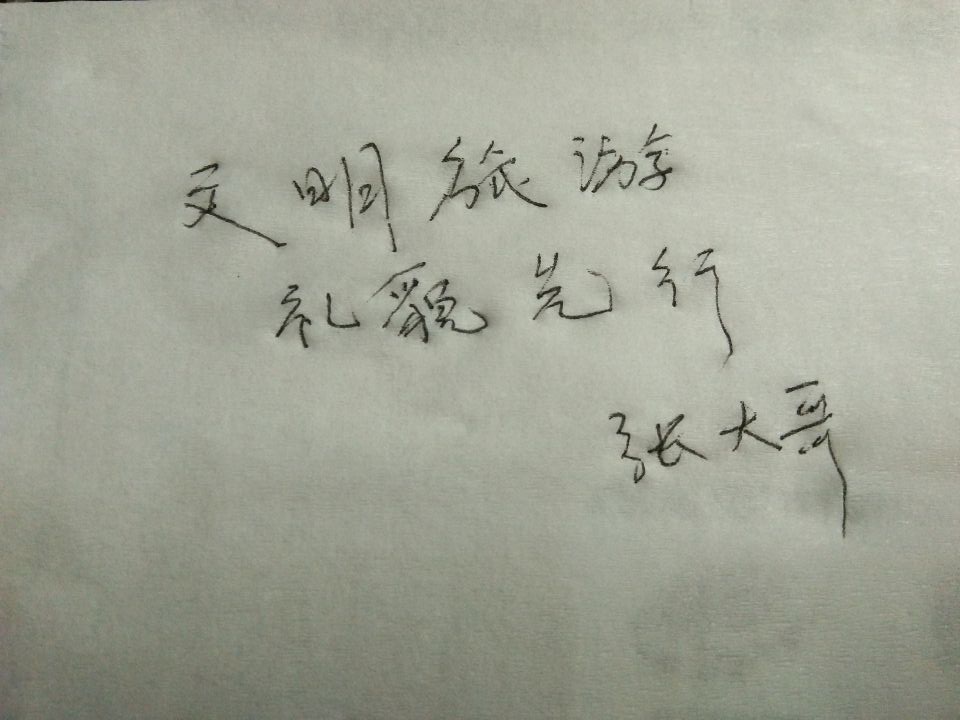 文明旅游
礼貌先行
张大哥